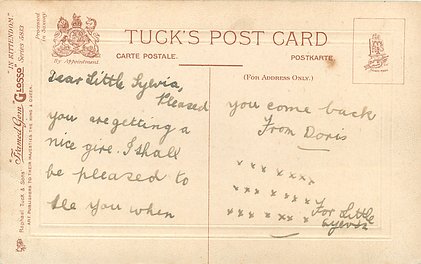 TUCK'S POST CARD
CARTE POSTALE.
POSTKARTE.
By Appointment.
(FOR ADDRESS ONLY.)
Dear Little Sylvia,
Pleased
you are getting a
nice girl. I shall
be pleased to
see you when
you come back
From Doris
x x x xx
x x x x x x
x x x x x
For Little
sylvia
"IN BITTENDOM" Series 5863
Processed in Saxony
"Framed Gem" GLOSSO"
Raphael Tuck & Sons'
ART PUBLISHERS TO THEIR MAJESTIES THE KING & QUEEN.